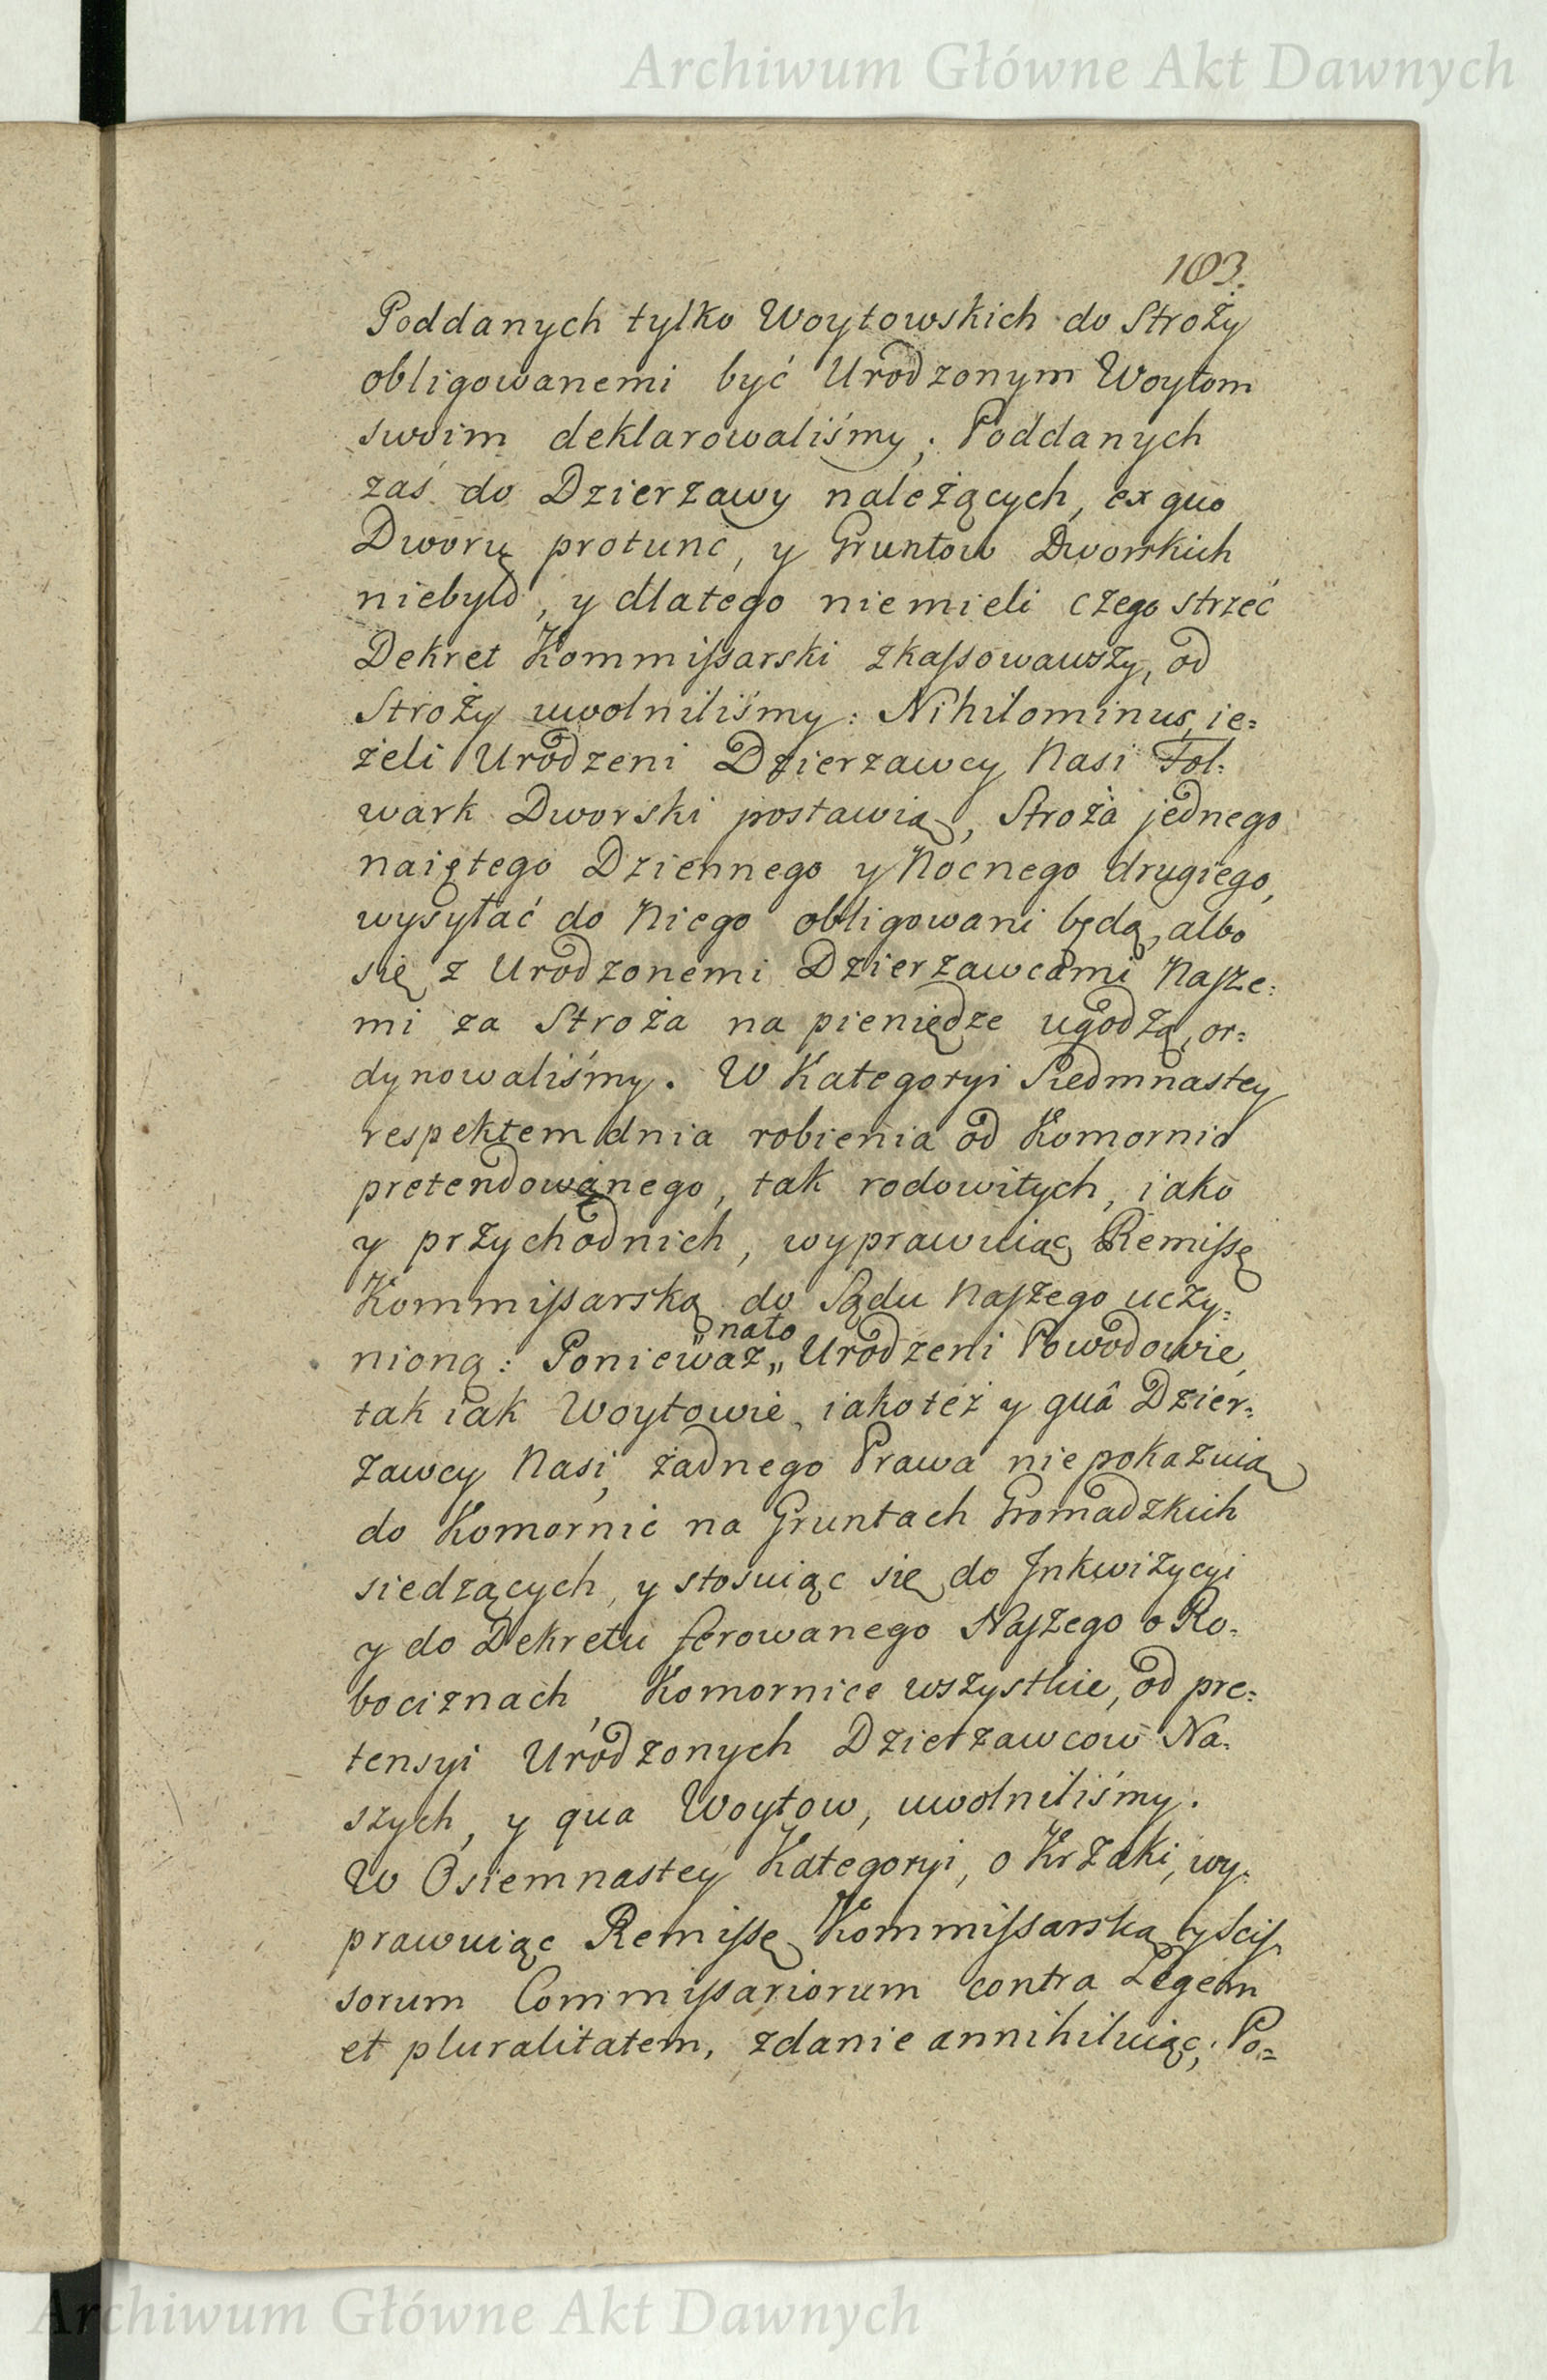 Archiwum Główne Akt Dawnych
103.
Poddanych tylko Woytowskich do Stroży
obligowanemi być Urodzonym Woytom
swoim deklarowaliśmy; Poddanych
zaś do Dzierzawy należących, ex quo
Dworu protunc, y Gruntow Dworskich
niebyło, y dlatego niemieli czego strzeć
Dekret Kommissarski zkassowawszy, od
Stroży uwolniliśmy: Nihilominus, ie=
żeli Urodzeni Dzierzawcy Nasi Fol=
wark Dworski postawią, Stroża jednego
naiętego Dziennego y Nocnego drugiego,
wysyłać do Niego obligowani będą, albo
się z Urodzonemi Dzierzawcami Nasze=
mi za Stroża na pieniędze ugodzą, or=
dynowaliśmy. W Kategoryi Siedmnastey
respektem dnia robienia od Komornic
pretendowanego, tak rodowitych, iako
y przychodnich, wyprawuiąc Remissę
Kommissarską do Sądu Naszego uczy=
nioną: Ponieważ „ nato Urodzeni Powodowie,
tak iak Woytowie, iakoteż y quâ Dzier=
zawcy Nasi, żadnego Prawa niepokazuią
do Komornic na Gruntach Gromadzkich
siedzących, y stosuiąc się do Inkwizycyi
y do Dekretu ferowanego Naszego o Ro=
bociznach, Komornice wszystkie, od pre=
tensyi Urodzonych Dzierzawcow Na=
szych, y qua Woytow, uwolniliśmy.
W Osiemnastey Kategoryi, o Krzaki, wy=
prawuiąc Remissę Kommissarską, y Scis
sorum Commissariorum contra Legem
et pluralitatem, zdanie annihiluiąc; Po=
Archiwum Główne Akt Dawnych